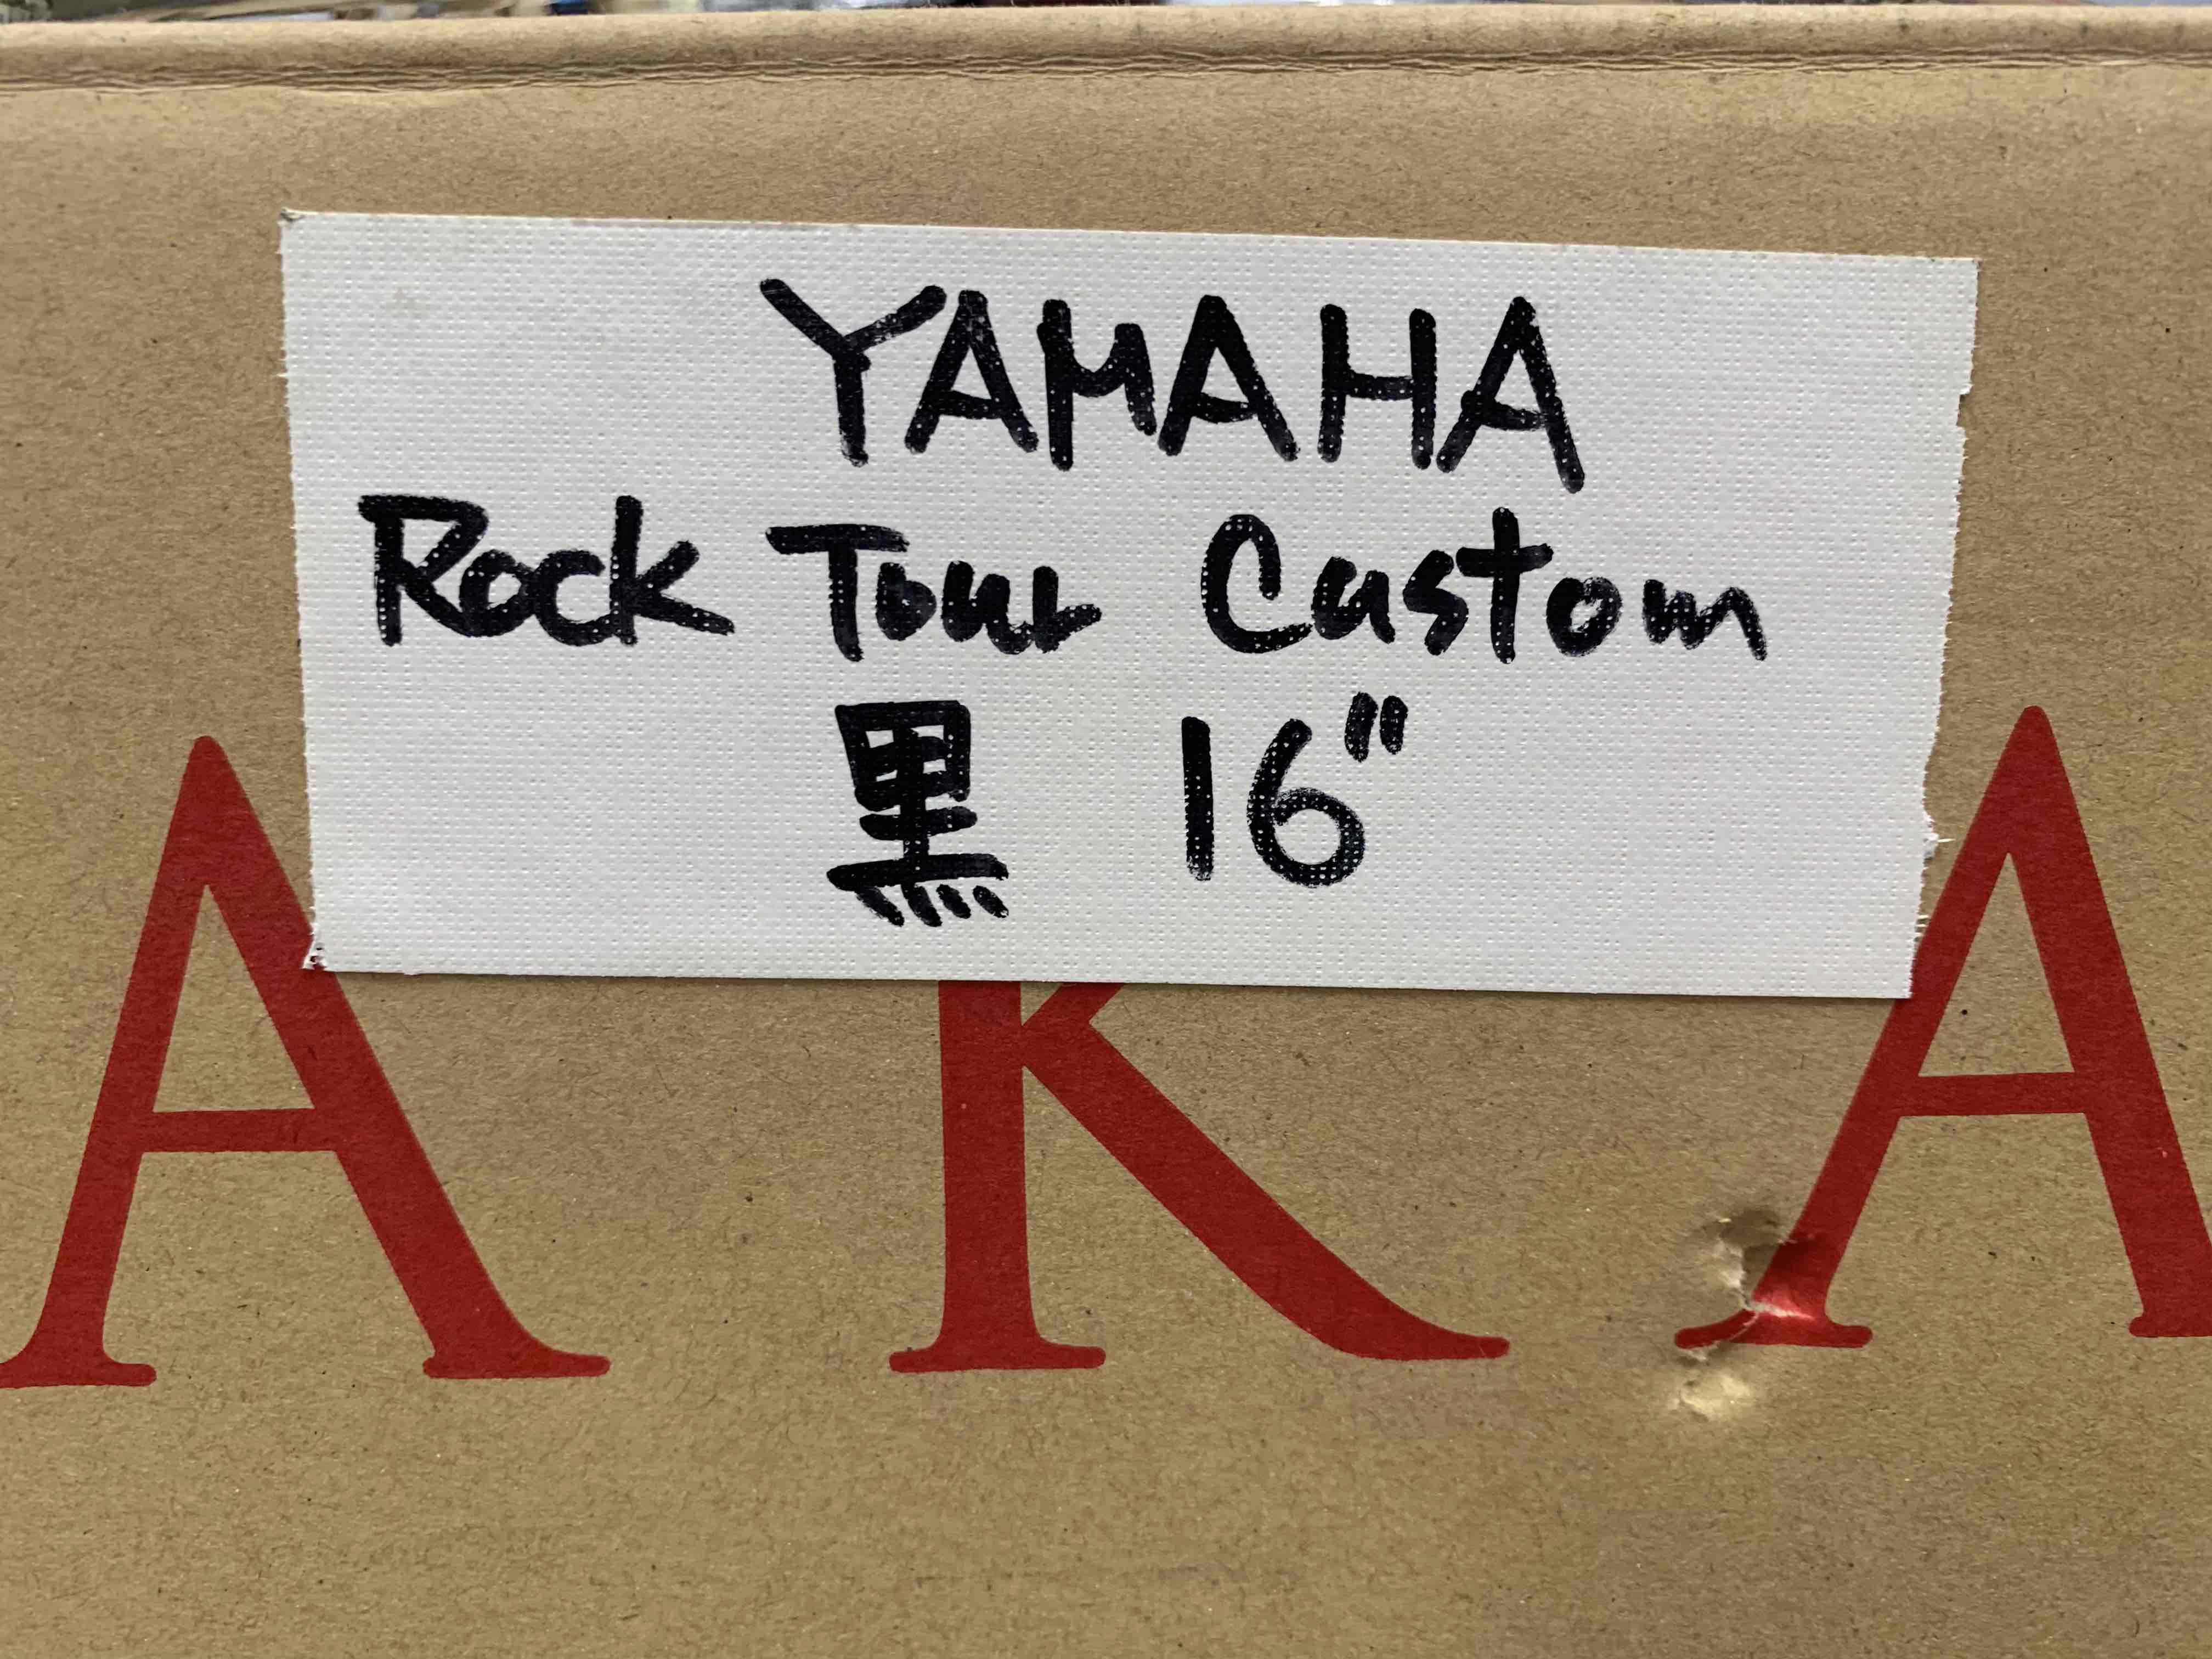 YAMAHA
Rock Tour Custom
黒 16"
AKA